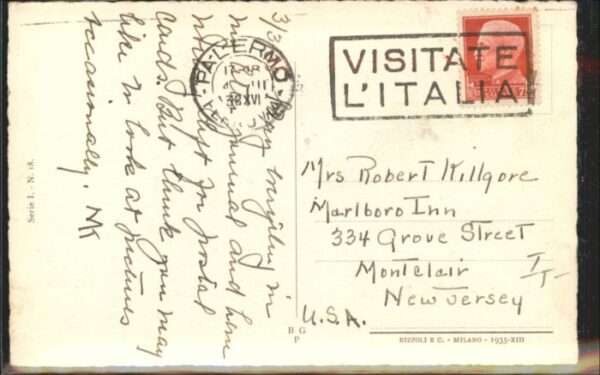 3/3
in
my journal and have
for postal
cards. But think you may
like to look at pictures
occasionally. NK
PALERMO
38XVI
VISITATE
L'ITALIA
Mrs Robert Killgore
Marlboro Inn
334 Grove Street
Montclair
New Jersey
U.S.A.
Serie I. - N. 18.
B G
P
RIZZOLI E C. - MILANO - 1935-XIII